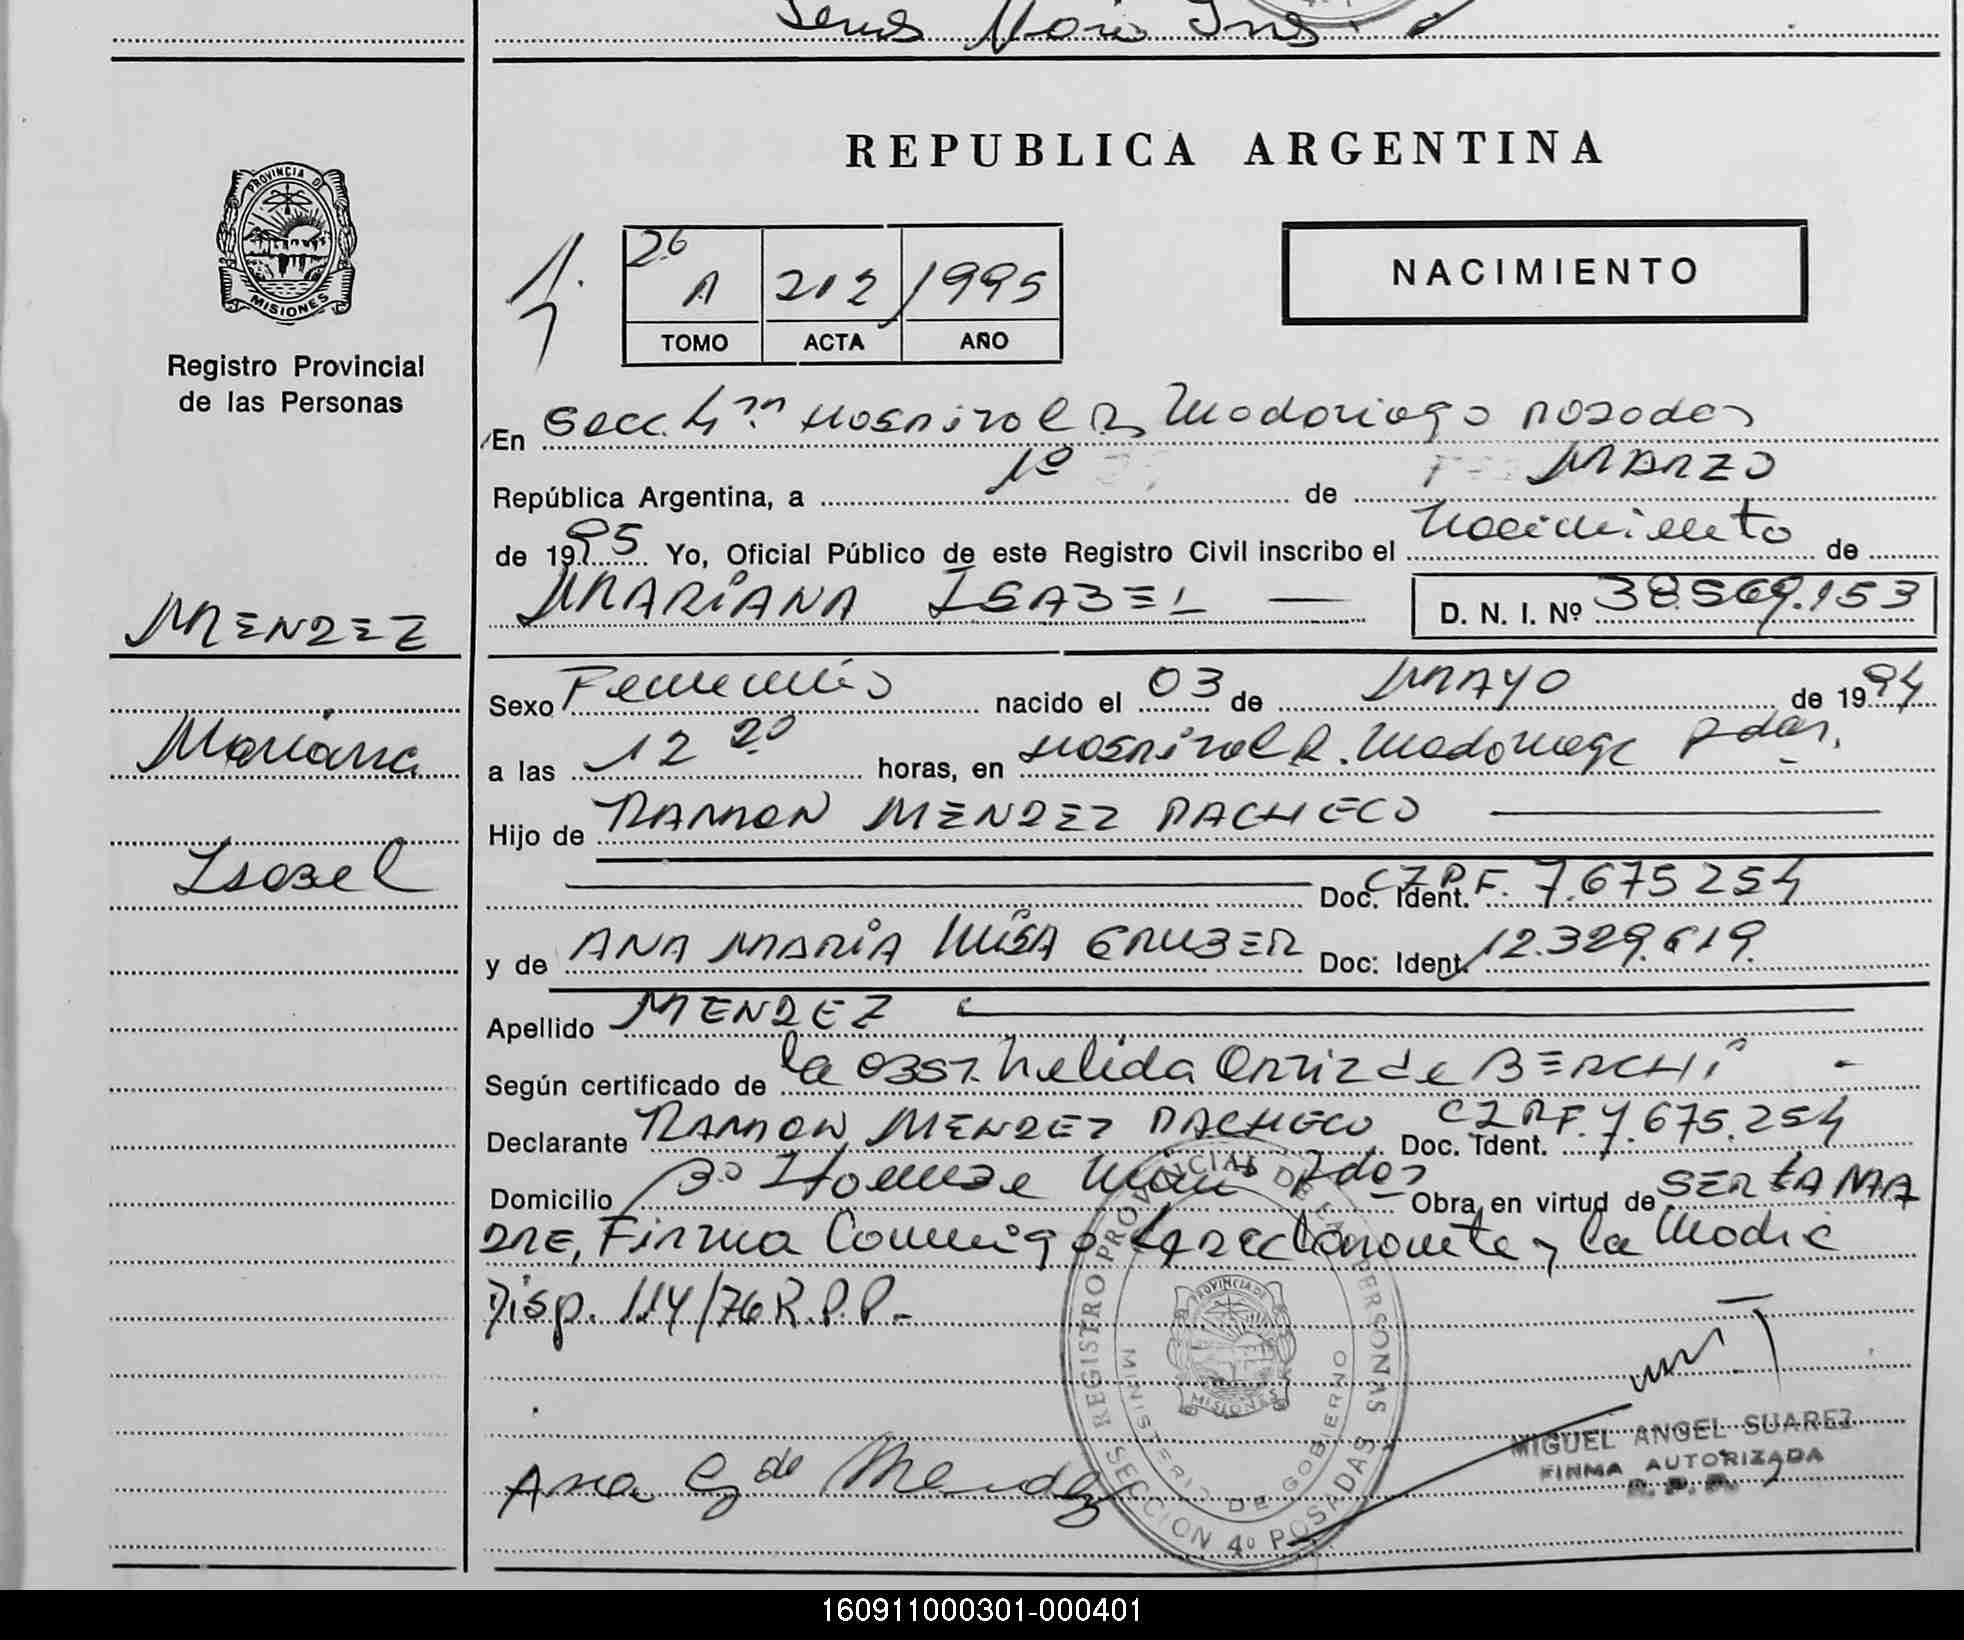 REPUBLICA ARGENTINA
PROVINCIA DE
MISIONES
Registro Provincial
de las Personas
26
A 212 1995
TOMO ACTA AÑO
NACIMIENTO
En Secc. 4ta Hospital R Madariaga Posadas
República Argentina, a 1º de MARZO
de 1995 Yo, Oficial Público de este Registro Civil inscribo el Nacimiento de
MARIANA ISABEL D. N. I. Nº 38.569.153
MENDEZ
Mariana
Isabel
Sexo Femenino nacido el 03 de MAYO de 1994
a las 12 20 horas, en Hospital R. Madariaga Pdas.
Hijo de RAMON MENDEZ PACHECO
Doc. Ident. CIPF. 7.675254
y de ANA MARIA LUISA GRUBER Doc. Ident. 12.329.619.
Apellido MENDEZ
Según certificado de la OBST. Nelida Ortiz de BERCHI
Declarante RAMON MENDEZ PACHECO Doc. Ident. CIPF. 7.675.254
Domicilio Bº Pdas Obra en virtud de SER LA MA
DRE, Firma Conmigo el declarante y la Madre
Disp. 114/76 R.P.P.-
Ana G de Mendez
REGISTRO PROVINCIAL DE LAS PERSONAS
MINISTERIO DE GOBIERNO
PROVINCIA DE
MISIONES
SECCION 4º POSADAS
MIGUEL ANGEL SUAREZ
FIRMA AUTORIZADA
R. P. P.
160911000301-000401